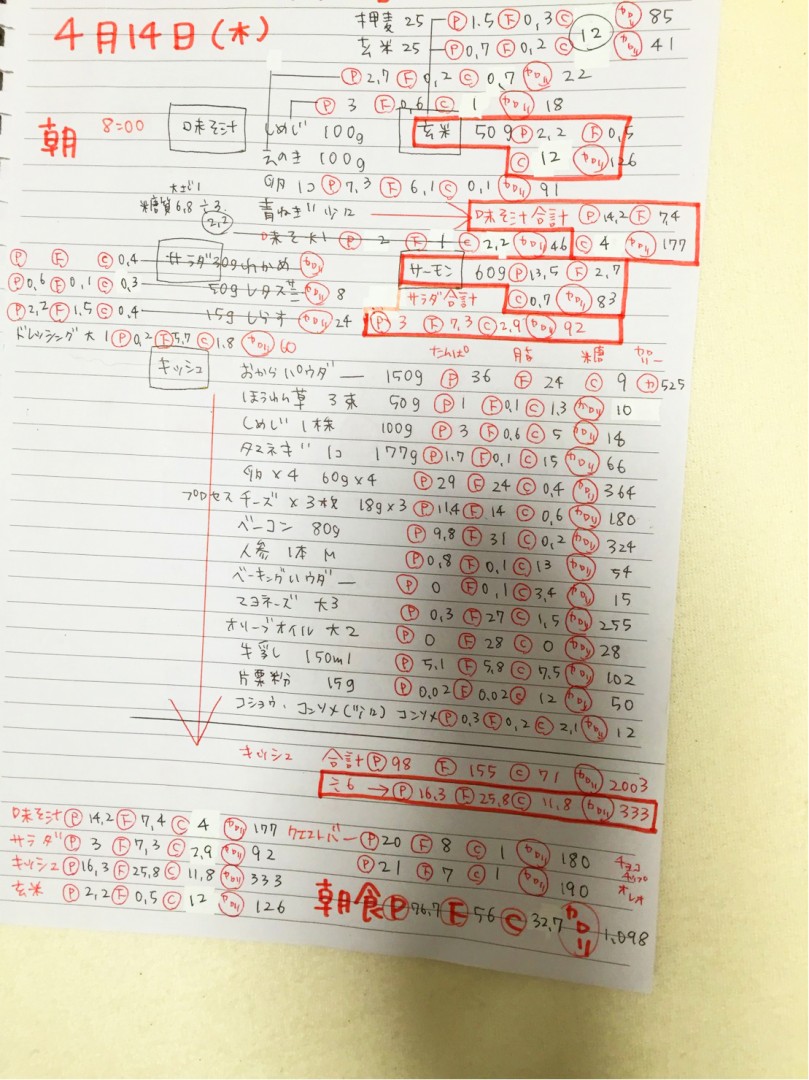 4月14日(木)
押麦 25 Ⓟ 1.5 Ⓕ 0,3 Ⓒ 12 カロリ 85
玄米 25 Ⓟ 0,7 Ⓕ 0,2 Ⓒ カロリ 41
Ⓟ 2,7 Ⓕ 0,2 Ⓒ 0,7 カロリ 22
Ⓟ 3 Ⓕ 0,6 Ⓒ 1 カロリ 18
朝 8:00 味そ汁 しめじ 100g 玄米 50g Ⓟ 2,2 Ⓕ 0,5
えのき 100g Ⓒ 12 カロリ 126
卵 1コ Ⓟ 7,3 Ⓕ 6,1 Ⓒ 0,1 カロリ 91
大さじ1
糖質 6,8 ÷ 3 青ねぎ 少々 味そ汁合計 Ⓟ 14,2 Ⓕ 7,4
2,2 味そ大1 Ⓟ 2 Ⓕ 1 Ⓒ 2,2 カロリ 46 Ⓒ 4 カロリ 177
Ⓟ Ⓕ Ⓒ 0,4 サラダ 30gわかめ カロリ サーモン 60g Ⓟ 13,5 Ⓕ 2,7
Ⓟ 0,6 Ⓕ 0,1 Ⓒ 0,3 50g レタス カロリ 8 サラダ合計 Ⓒ 0,7 カロリ 83
Ⓟ 2,2 Ⓕ 1,5 Ⓒ 0,4 15g しらす カロリ 24 Ⓟ 3 Ⓕ 7,3 Ⓒ 2,9 カロリ 92
ドレッシング 大 1 Ⓟ 0,2 Ⓕ 5,7 Ⓒ 1,8 カロリ 60
たんぱ 脂 糖 カロリー
キッシュ おからパウダー 150g Ⓟ 36 Ⓕ 24 Ⓒ 9 カ 525
ほうれん草 3束 50g Ⓟ 1 Ⓕ 0,1 Ⓒ 1,3 カロリ 10
しめじ 1株 100g Ⓟ 3 Ⓕ 0,6 Ⓒ 5 カロリ 18
タマネギ 1コ 177g Ⓟ 1,7 Ⓕ 0,1 Ⓒ 15 カロリ 66
卵×4 60g×4 Ⓟ 29 Ⓕ 24 Ⓒ 0,4 カロリ 364
プロセスチーズ×3枚 18g×3 Ⓟ 11,4 Ⓕ 14 Ⓒ 0,6 カロリ 180
ベーコン 80g Ⓟ 9,8 Ⓕ 31 Ⓒ 0,2 カロリ 324
人参 1本 M Ⓟ 0,8 Ⓕ 0,1 Ⓒ 13 カロリ 54
ベーキングパウダー Ⓟ 0 Ⓕ 0,1 Ⓒ 3,4 カロリ 15
マヨネーズ 大3 Ⓟ 0,3 Ⓕ 27 Ⓒ 1,5 カロリ 255
オリーブオイル 大2 Ⓟ 0 Ⓕ 28 Ⓒ 0 カロリ 28
牛乳 150ml Ⓟ 5,1 Ⓕ 5,8 Ⓒ 7,5 カロリ 102
片栗粉 15g Ⓟ 0,02 Ⓕ 0,02 Ⓒ 12 カロリ 50
コショウ・コンソメ() コンソメ Ⓟ 0,3 Ⓕ 0,2 Ⓒ 2,1 カロリ 12
キッシュ 合計 Ⓟ 98 Ⓕ 155 Ⓒ 71 カロリ 2003
÷6 → Ⓟ 16,3 Ⓕ 25,8 Ⓒ 11,8 カロリ 333
味そ汁 Ⓟ 14,2 Ⓕ 7,4 Ⓒ 4 カロリ 177 クエストバー Ⓟ 20 Ⓕ 8 Ⓒ 1 カロリ 180 チョコチップ
サラダ Ⓟ 3 Ⓕ 7,3 Ⓒ 2,9 カロリ 92 Ⓟ 21 Ⓕ 7 Ⓒ 1 カロリ 190 オレオ
キッシュ Ⓟ 16,3 Ⓕ 25,8 Ⓒ 11,8 カロリ 333
玄米 Ⓟ 2,2 Ⓕ 0,5 Ⓒ 12 カロリ 126 朝食 Ⓟ 76,7 Ⓕ 56 Ⓒ 32,7 カロリ 1,098